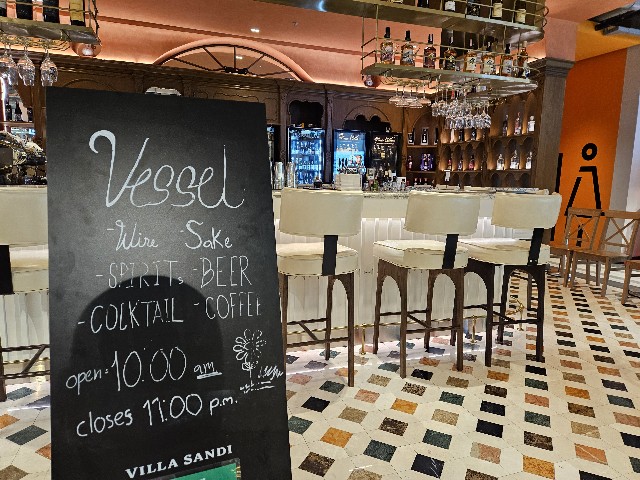 Vessel
- Wine - Sake
- SPIRITS - BEER
- COCKTAIL - COFFEE
open: 10:00 am
closes 11:00 p.m.
VILLA SANDI